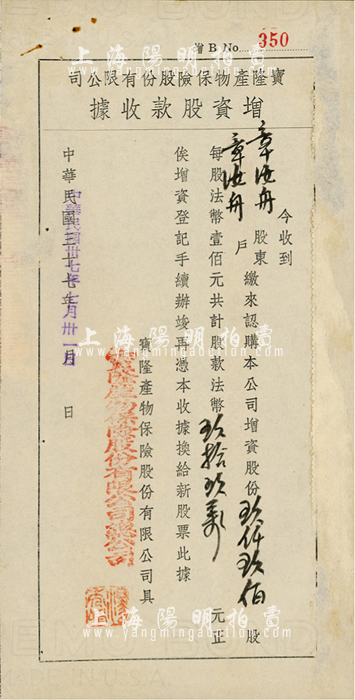 增 B No 350
寶隆產物保險股份有限公司
增資股款收據
今收到
章洪舟 股東
章洪舟 戶 繳來認購本公司增資股份玖仟玖佰股
每股法幣壹佰元共計股款法幣玖拾玖萬元正
俟增資登記手續辦竣再憑本收據換給新股票此據
寶隆產物保險股份有限公司具
寶隆產物保險股份有限公司總公司
中華民國三十七年 月 日
中華民國卅七年七月卅一日
上海陽明拍賣
上海陽明拍賣
上海陽明拍賣
www.yangmingauction.com
MADE IN U.S.A.